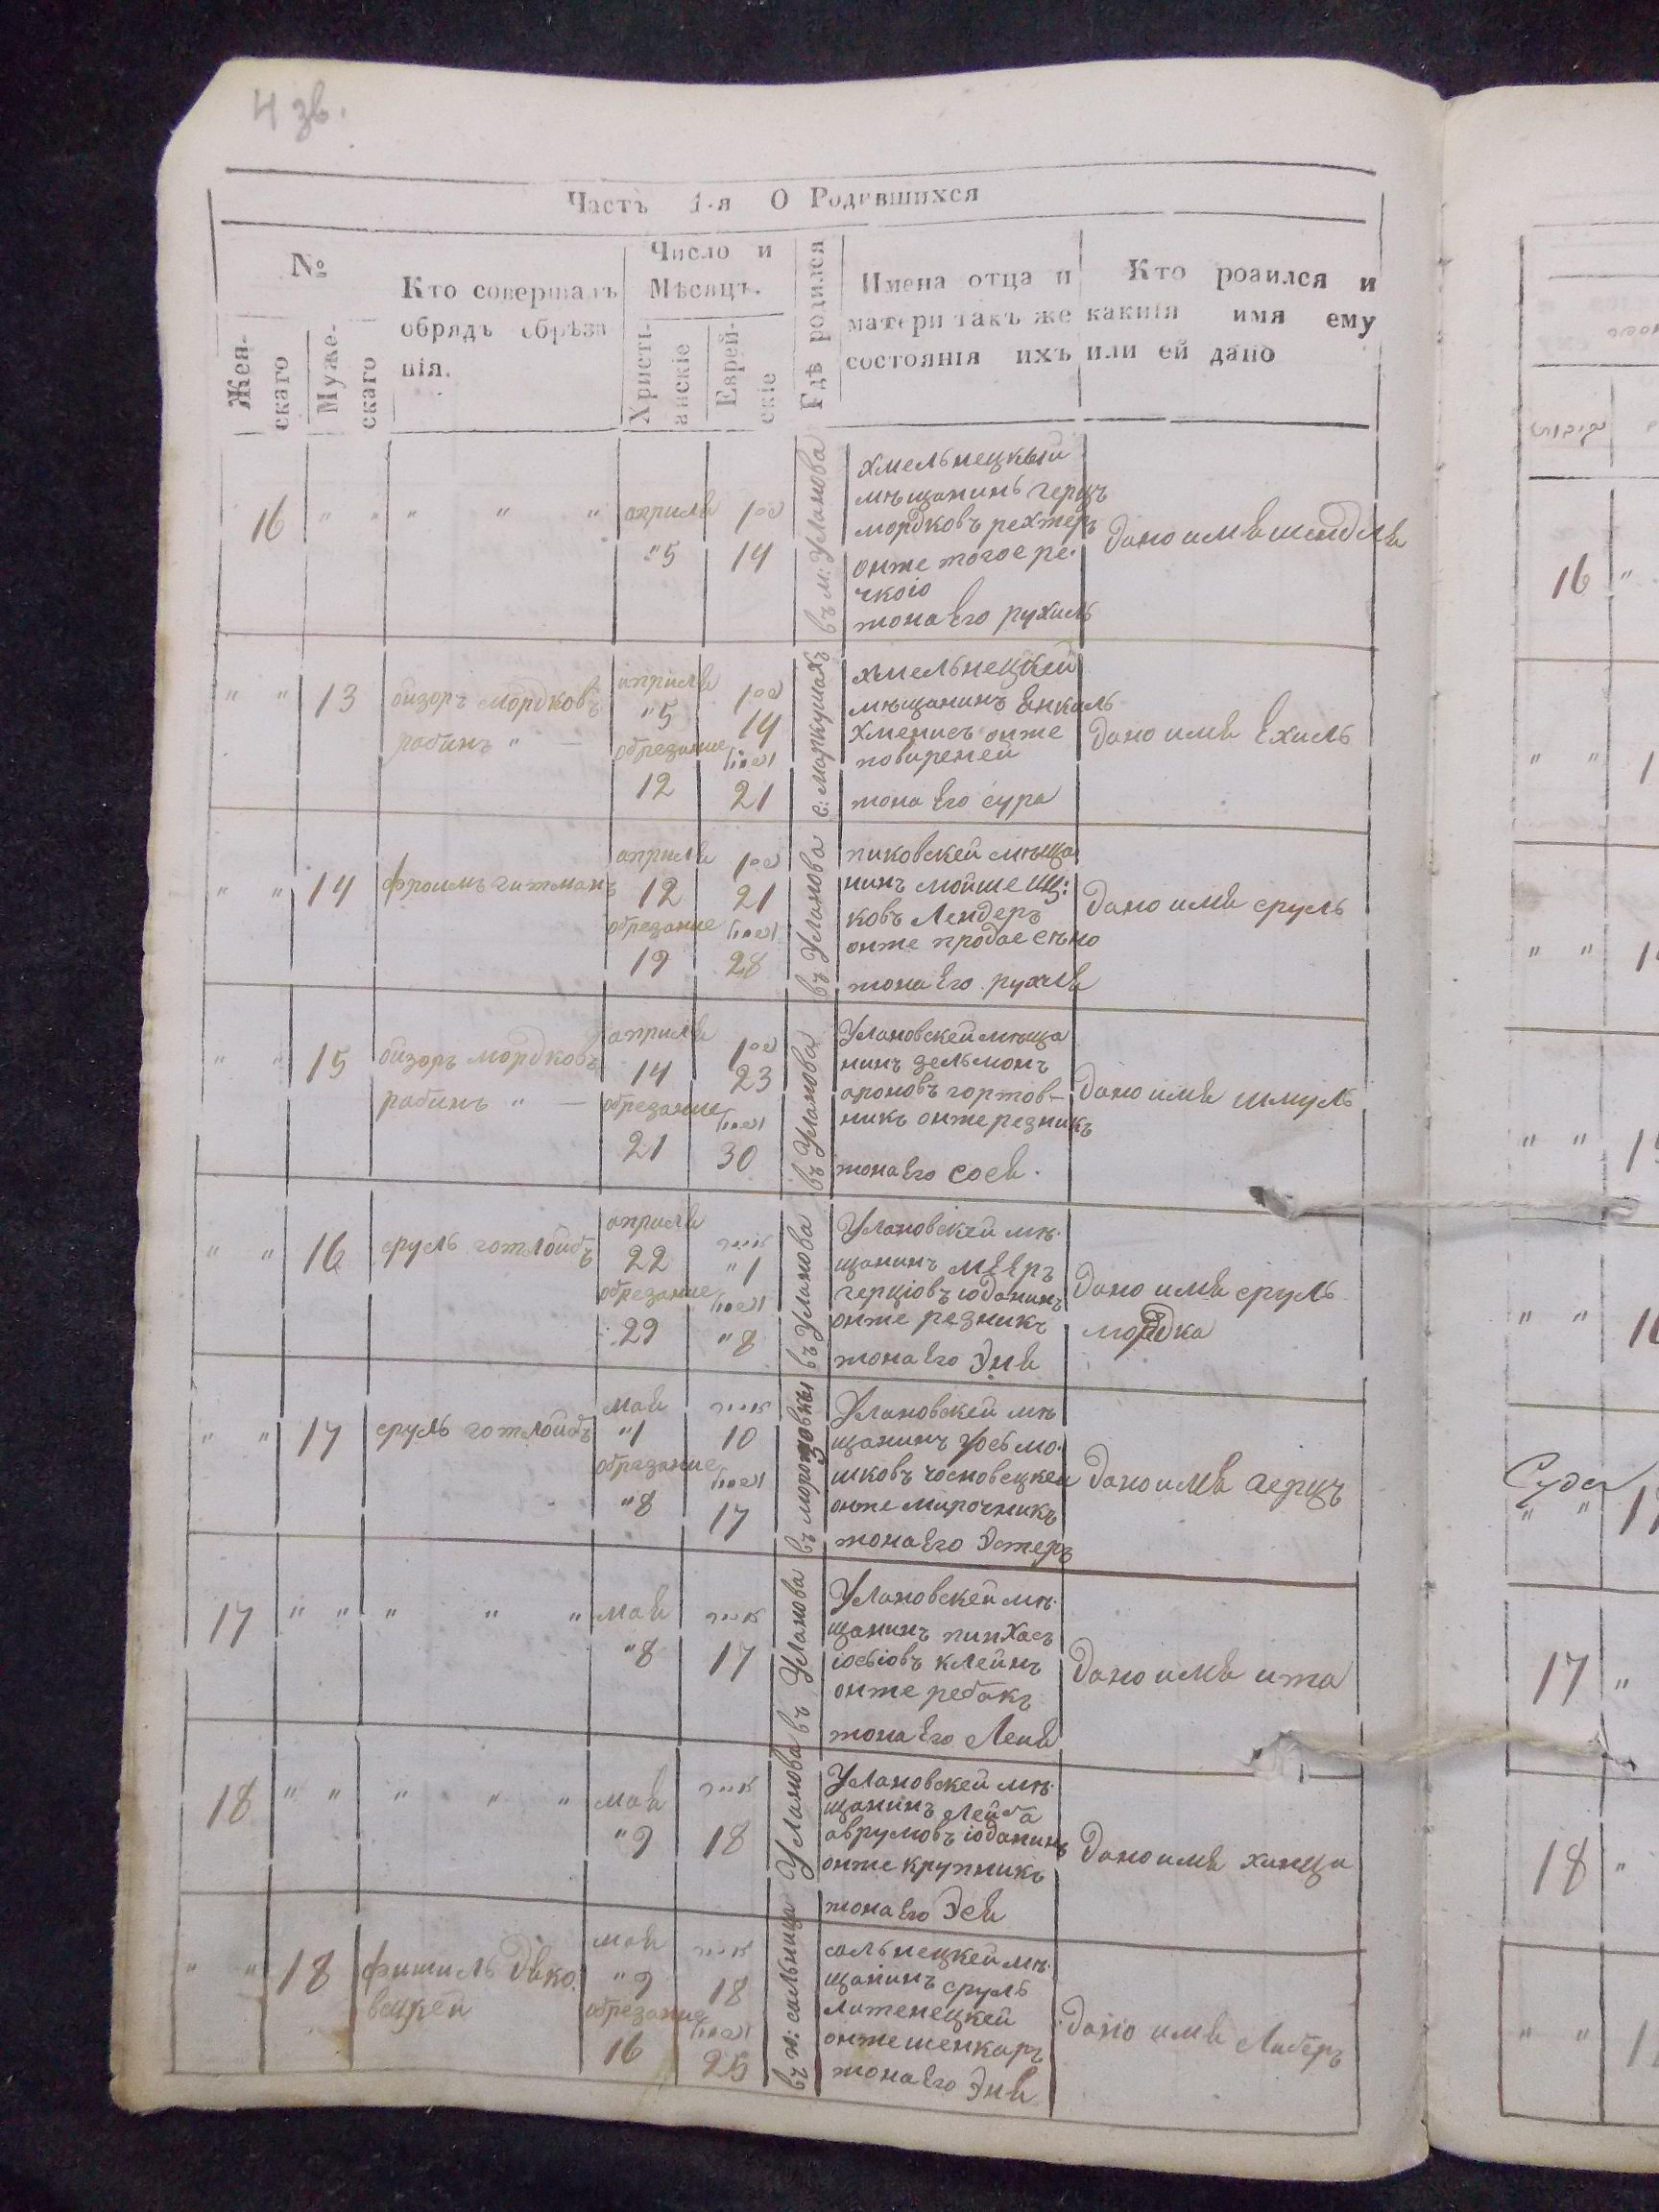 4 зв.
Часть 1-я О Родившихся
№
Жен-
скаго
Муже-
скаго
Кто совершалъ
обрядъ обрѣза
нія.
Число и
Мѣсяцъ.
Христі-
анскіе
Еврей-
скіе
Гдѣ родился
Имена отца и
матери такъ же
состоянія ихъ
Кто родился и
какиія имя ему
или ей дано
16 " " " " " априля
"5 14
въ м: Уланова
хмельнецкый
мѣщанинъ герцъ
мордковъ рехтеръ
онже тогое ре.
чкоіо
жона Его рухиль
дано имя шендля
" " 13 бизоръ мордковъ
рабинъ " —
априля
"5 14
обрезание
12 21
с: маркушахъ
хмельнецкей
мѣщанинъ Янкиль
хменисъ онже
повиреней
жона Его сура
дано имя Ехиль
" " 14 фроимъ гитманъ
априля
12 21
обрезание
19 28
въ Уланова
пиковскей мѣща
нинъ мойше иц:
ковъ Лендеръ
онже продае сѣно
жона Его рухля
дано имя сруль
" " 15 бизоръ мордковъ
рабинъ " —
априля
14 23
обрезание
21 30
въ Уланова
Улановскей мѣща
нинъ зельмонъ
ароновъ гортов-
никъ онже резникъ
жона Его сося.
дано имя шмуль
" " 16 сруль готлойбъ
априля
22 "1
обрезание
29 "8
въ Уланова
Улановскей мѣ.
щанинъ мЕЕръ
герціовъ іоданинъ
онже резникъ
жона Его Эня
дано имя сруль
мордка
" " 17 сруль готлойбъ
мая
"1 10
обрезание
"8 17
въ морозовкы
Улановскей мѣ
щанинъ іось мо.
шковъ чосновецкей
онже мирочникъ
жона Его Эстеръ
дано имя герцъ
17 " " " " " мая
"8 17
въ Уланова
Улановскей мѣ.
щанинъ пинхасъ
іосьіовъ клейнъ
онже ребакъ
жона Его Леия
дано имя ита
18 " " " " " мая
"9 18
въ Уланова
Улановскей мѣ.
щанинъ лейба
аврумовъ іоданинъ
онже крупникъ
жона Его Эся
дано имя ханца
" " 18 фишиль дяко
вецкей
мая
"9 18
обрезание
16 25
въ м: сальница
сальнецкей мѣ.
щанинъ сруль
литенецкей
онже шенкаръ
жона Его Эня
дано имя Либеръ
16 "
" "
" "
" "
" "
Суда
" "
17 "
18 "
" "